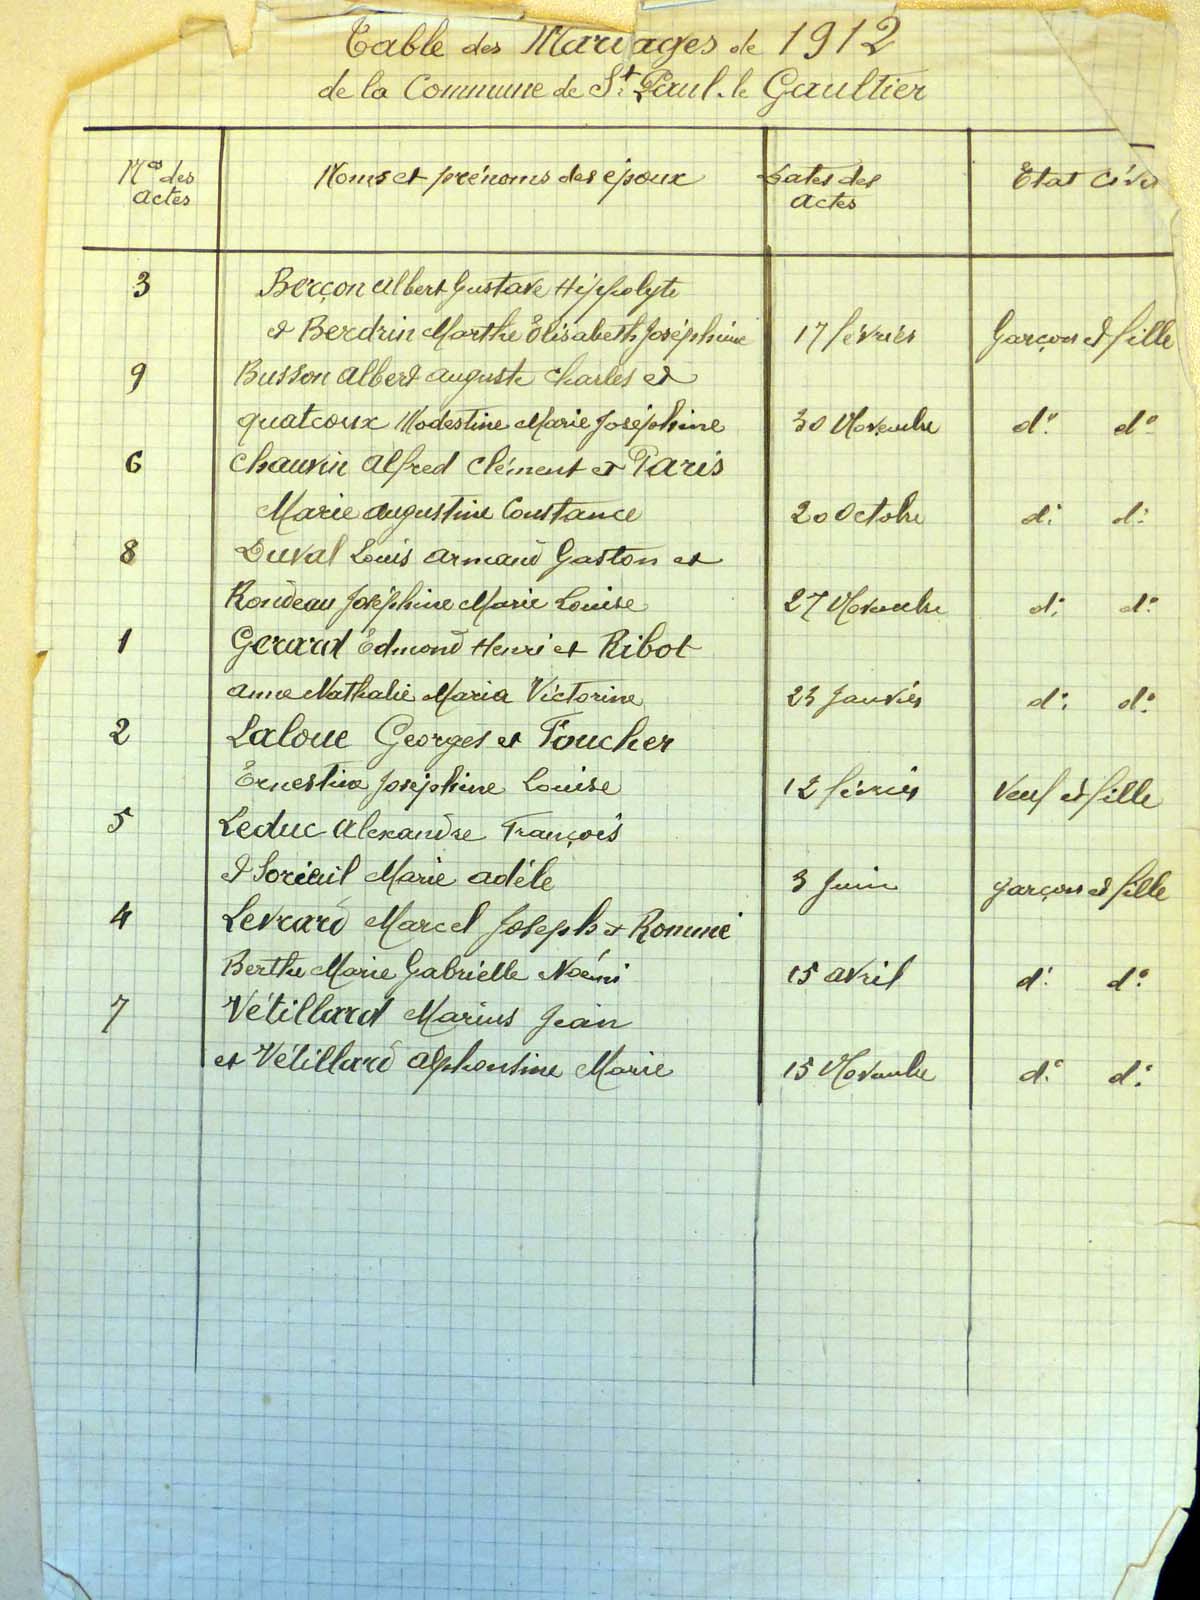 Table des Mariages de 1912
de la Commune de St. Paul-le Gaultier
Nos des Actes Noms et prénoms des époux Dates des Actes Etat Civil
3 Berçon Albert Gustave Hippolyte
et Berdrin Marthe Élisabeth Joséphine 17 février Garçon et fille
9 Busson Albert Auguste Charles et
Quatcoux Modestine Marie Joséphine 30 Novembre do do
6 Chauvin Alfred Clément et Paris
Marie Augustine Constance 20 Octobre do do
8 Duval Louis Armand Gaston et
Rondeau Joséphine Marie Louise 27 Novembre do do
1 Gerard Edmond Henri et Ribot
Anne Nathalie Maria Victorine 23 Janvier do do
2 Laloue Georges et Foucher
Ernestine Joséphine Louise 12 février Veuf et fille
5 Leduc Alexandre François
et Sorieul Marie Adèle 3 Juin Garçon et fille
4 Levrard Marcel Joseph et Rommé
Berthe Marie Gabrielle Noémi 15 Avril do do
7 Vétillard Marius Jean
et Vétillard Alphonsine Marie 15 Novembre do do